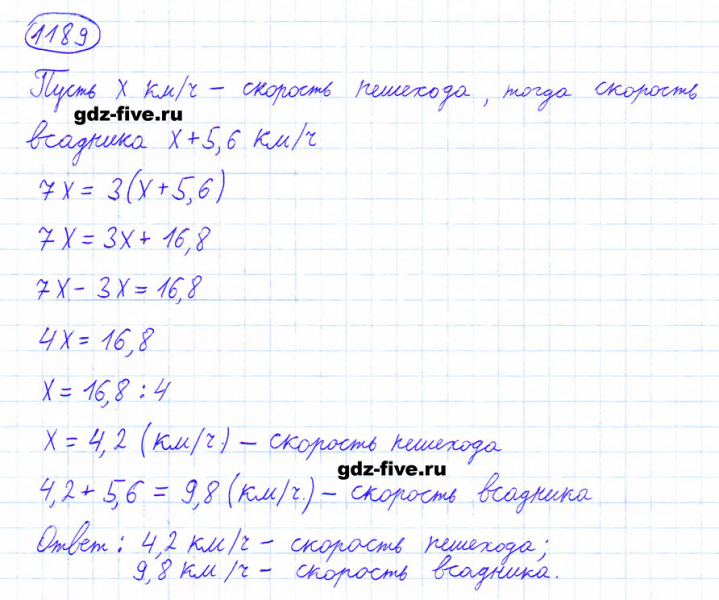 1189
Пусть х км/ч – скорость пешехода, тогда скорость
gdz-five.ru
всадника х+5,6 км/ч
7х = 3(х+5,6)
7х = 3х+ 16,8
7х - 3х = 16,8
4х = 16,8
х = 16,8 : 4
х = 4,2 (км/ч.) – скорость пешехода
gdz-five.ru
4,2+ 5,6 = 9,8 (км/ч.) – скорость всадника
Ответ: 4,2 км/ч – скорость пешехода;
9,8 км/ч – скорость всадника.